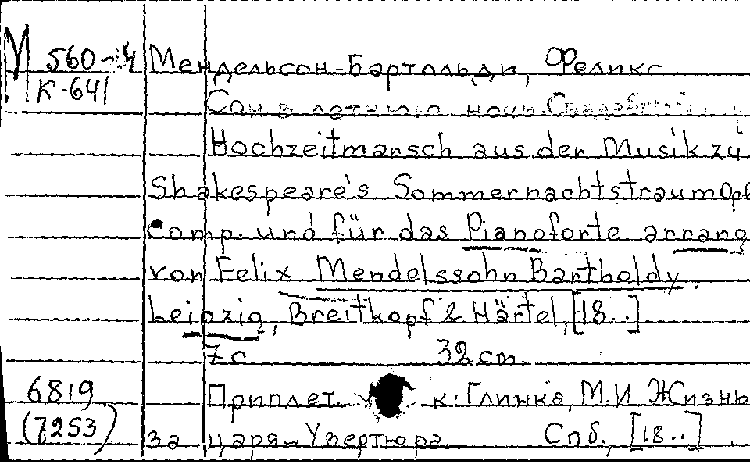 М 560-4 Мендельсон-Бартольди, Феликс
К-641
Сон в летнюю ночь. Свадебный
Hochzeitmarsch aus der Musik zu
Shakespeare's Sommernachtstraum Op 6
comp. und für das Pianoforte arrang
von Felix Mendelssohn Bartholdy.
Leipzig, Breitkopf & Härtel, [18..]
7 с 32 cm
6819 Приплет. к: Глинка, М.И Жизнь
(7253) за царя - Увертюра Спб., [18..]